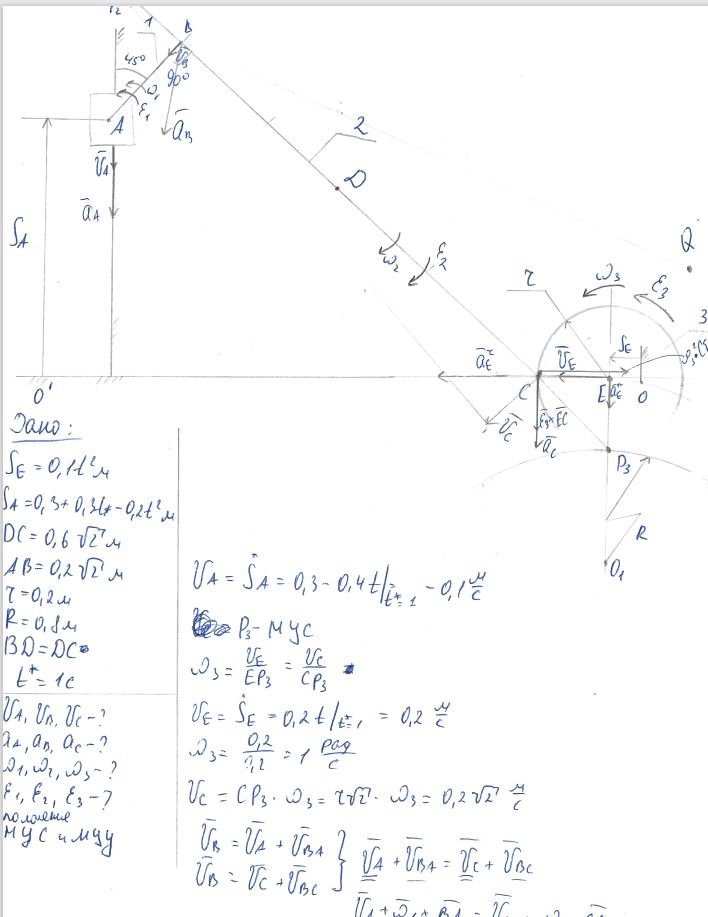 1
B
45°
V̄_B
90°
ω_1
ε_1
A
ā_B
2
V̄_A
D
ā_A
S_A
Q
ω_2
ε_2
τ
ω_3
ε_3
3
S_E
ā_E^τ
V̄_E
C
E
O
O'
V̄_C
ε̄_3×ĒC
ā_C
P_3
R
O_1
Дано:
S_E = 0,1t² м
S_A = 0,3 + 0,3t - 0,2t² м
DC = 0,6√2 м
AB = 0,2√2 м
τ = 0,2 м
R = 0,8 м
BD = DC
t* = 1c
V_A, V_B, V_C - ?
a_A, a_B, a_C - ?
ω_1, ω_2, ω_3 - ?
ε_1, ε_2, ε_3 - ?
положение
МЦС и МЦУ
V_A = Ṡ_A = 0,3 - 0,4t/_{t*=1} = -0,1 м/с
P_3 - МЦС
ω_3 = V_E/EP_3 = V_C/CP_3
V_E = Ṡ_E = 0,2t/_{t*=1} = 0,2 м/с
ω_3 = 0,2/0,2 = 1 рад/с
V_C = CP_3 · ω_3 = τ√2 · ω_3 = 0,2√2 м/с
V̄_B = V̄_A + V̄_BA
V̄_B = V̄_C + V̄_BC } V̄_A + V̄_BA = V̄_C + V̄_BC